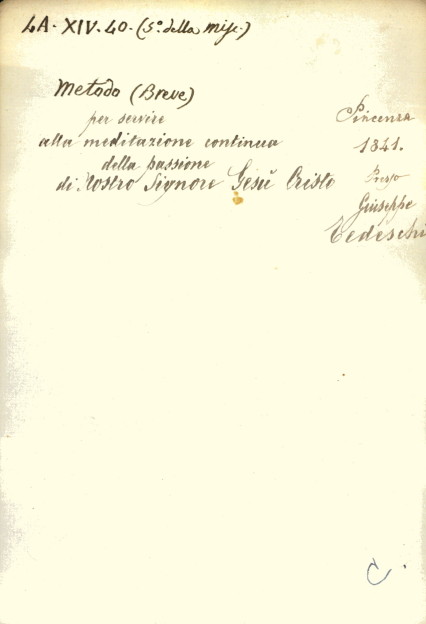 LA. XIV. 40. (5º. della misc.)
Metodo (Breve)
per servire
alla meditazione continua
della passione
di Nostro Signore Gesù Cristo
Piacenza
1841.
Presso
Giuseppe
Tedeschi
C.